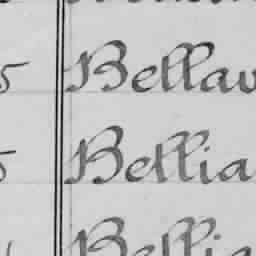 5 Bellav
5 Bellia
Bellia